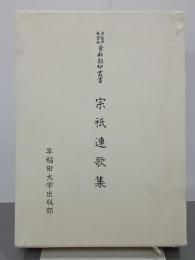 早稲田大学蔵 資料影印叢書
宗祇連歌集
早稲田大学出版部